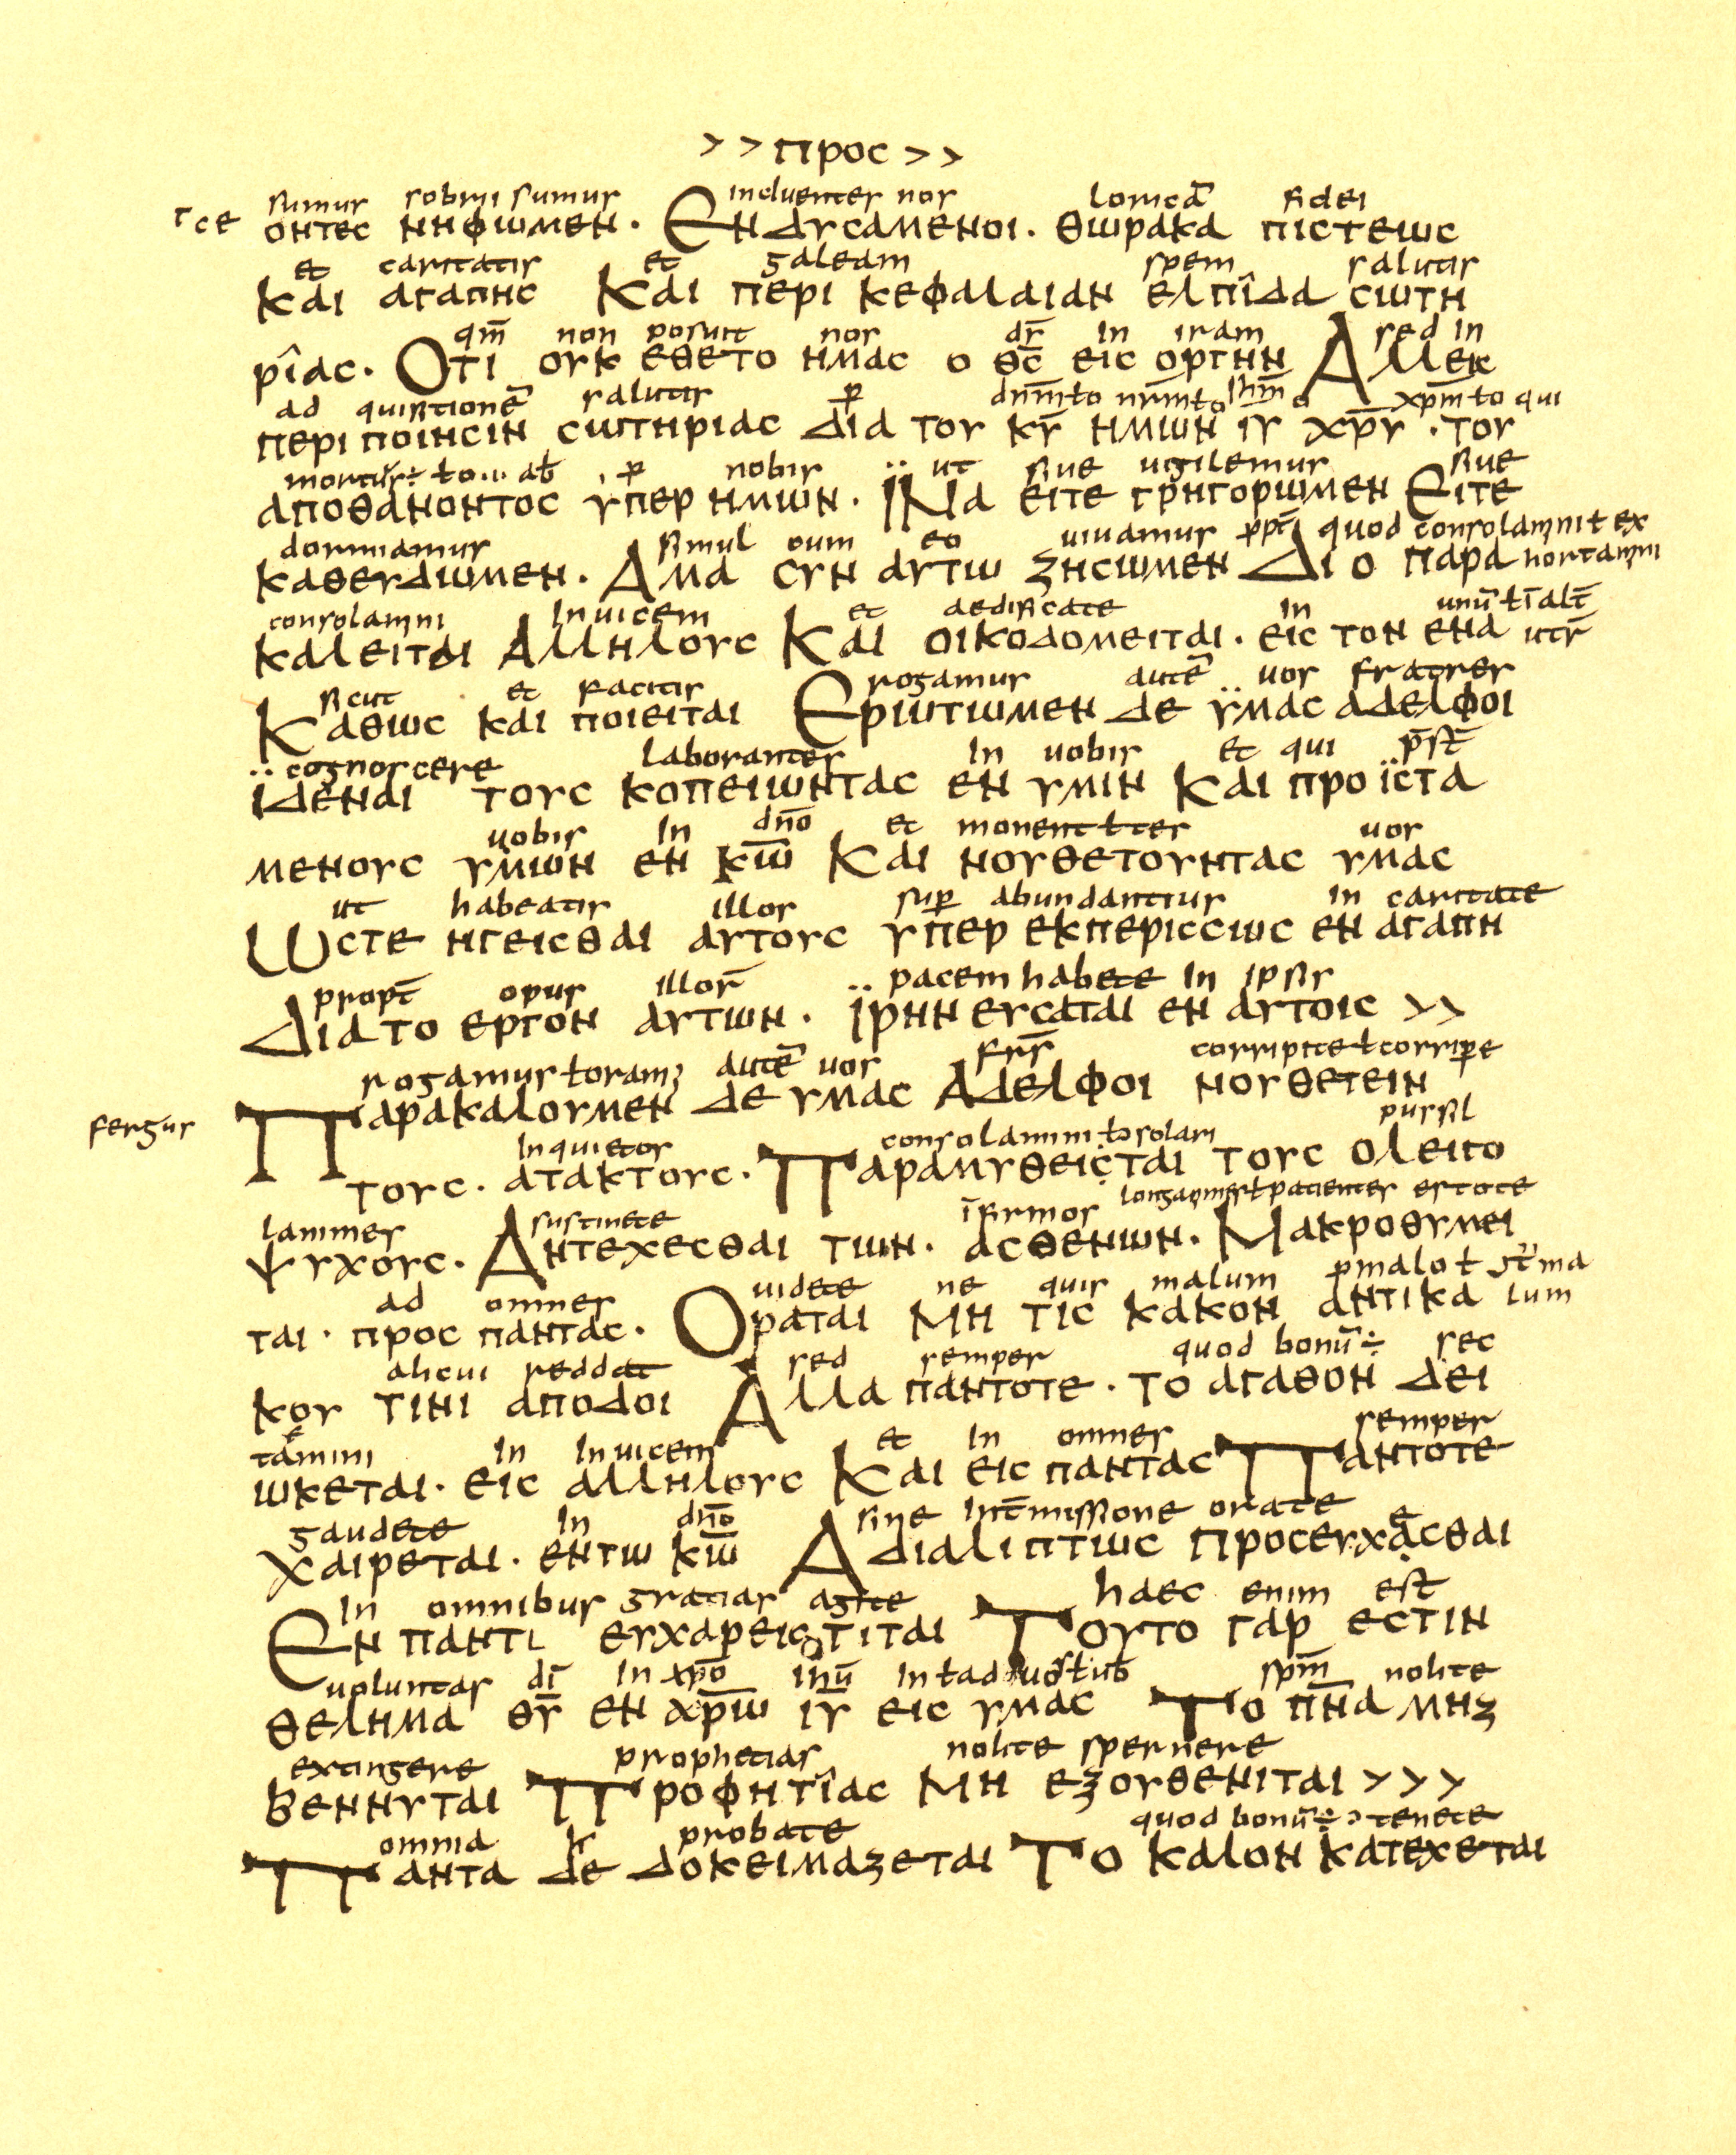 > > προς > >
τ c e sumus sobrii sumus induentes nos loricā fidei
οντες νηφωμεν · Ενδυσαμενοι · θωρακα πιστεως
et caritatis et galeam spem salutis
και αγαπης Και περι κεφαλαιαν ελπîδα σωτη
qm̄ non posuit nos ds̄ in iram sed in
ρîας · Οτι ουκ εθετο ημας ο θς̄ εις οργην Αλλεις
ad quisitionē salutis dnm̄ ł o nrm̄ ł o ihm̄ ł o xpm̄ ł o qui
περιποιησιν σωτηριας δια του κῡ ημων ιῡ χρῡ · του
nobis ut sive vigilemus sive
αποθανοντος υπερ ημων · ϊΝα ειτε γρηγορωμεν Ειτε
dormiamus simul cum eo vivamus quod consolamini ł ex
καθευδωμεν · Αμα συν αυτω ζησωμεν Δι ο παρα hortamini
consolamini invicem et aedificate in unū ł ī alt̄
καλειται Αλληλους Και οικοδομειται · εις τον ενα
sicut et facitis rogamus autē vos fratres
Καθως και ποιειται Ερωτωμεν δε ϋμας αδελφοι
cognoscere laborantes in vobis et qui
ϊδεναι τους κοπειωντας εν υμιν Και προϊστα
vobis in dnō et monent ł tes vos
μενους υμων εν κω̄ Και νουθετουντας υμας
ut habeatis illos sup abundantius in caritate
Ωστε ηγεισθαι αυτους υπερ εκπερισσως εν αγαπη
propt̄ opus illor̄ pacem habete in ipsis
Δια το εργον αυτων · ϊρηνευσαται εν αυτοις > >
rogamus ł oram; autē vos frr̄ corripite ł corripe
fergus Παρακαλουμεν δε υμας Αδελφοι νουθετειν
inquietos consolamini ł solam pussil
τους · ατακτους · Παραμυθεισται τους ολειγο
lanimes sustinete īfirmos longanimes ł patientes estote
ψυχους · Αντεχεσθαι των · ασθενων · Μακροθυμει
ad omnes videte ne quis malum malo ł ma
ται · προς παντας · Οραται Μη τις κακον αντι κα lum
alicui reddat sed semper quod bonū ÷ sec
κου τινι αποδοι Αλλα παντοτε · το αγαθον δει
tamini in invicem et in omnes semper
ωκεται · εις αλληλους Και εις παντας Παντοτε
gaudete in dnō sine int̄missione orate
Χαιρεται · εν τω κω̄ Αδιαλιπτως προσευχασθαι
in omnibus gratias agite haec enim est
Εν παντι ευχαρειστιται Τουτο γαρ εστιν
voluntas dī in xpō ihū in ł ad spm̄ nolite
θελημα θῡ εν χρω̄ ιῡ εις υμας Το πν̄α μη ζ
extingere prophetias nolite spernere
βεννυται Προφητîας Μη εξουθενιται > > >
omnia probate quod bonū ÷ tenete
Παντα δε δοκειμαζετται Το καλον κατεχεται